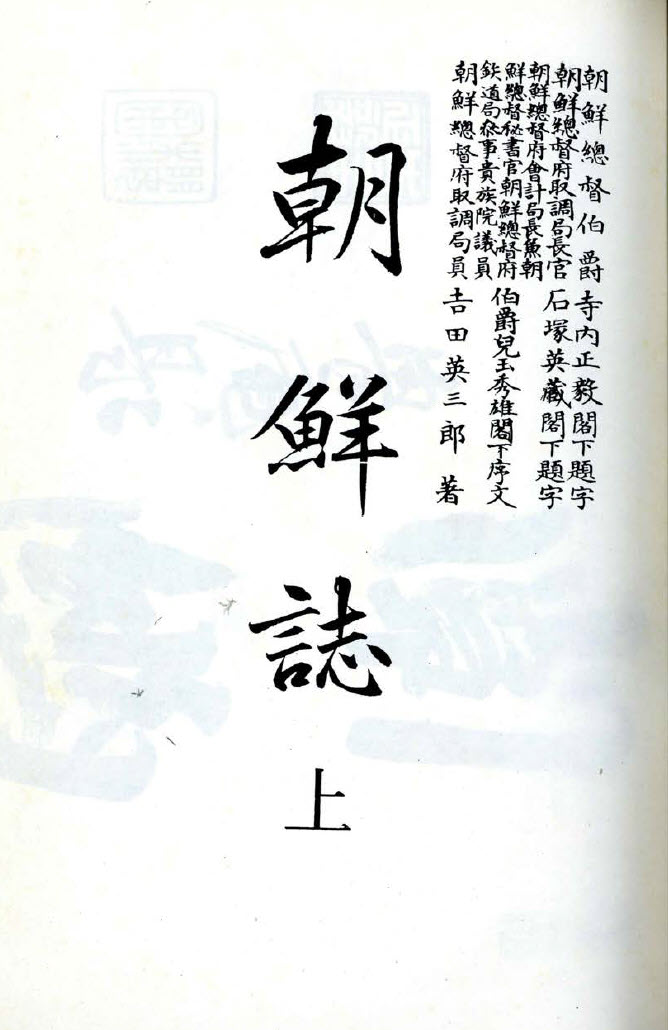 朝鮮總督伯爵寺内正毅閣下題字
朝鮮總督府取調局長官石塚英藏閣下題字
朝鮮總督府會計局長兼朝
鮮總督秘書官朝鮮總督府
鉄道局參事貴族院議員
伯爵兒玉秀雄閣下序文
朝鮮總督府取調局員吉田英三郎著
朝鮮誌
上